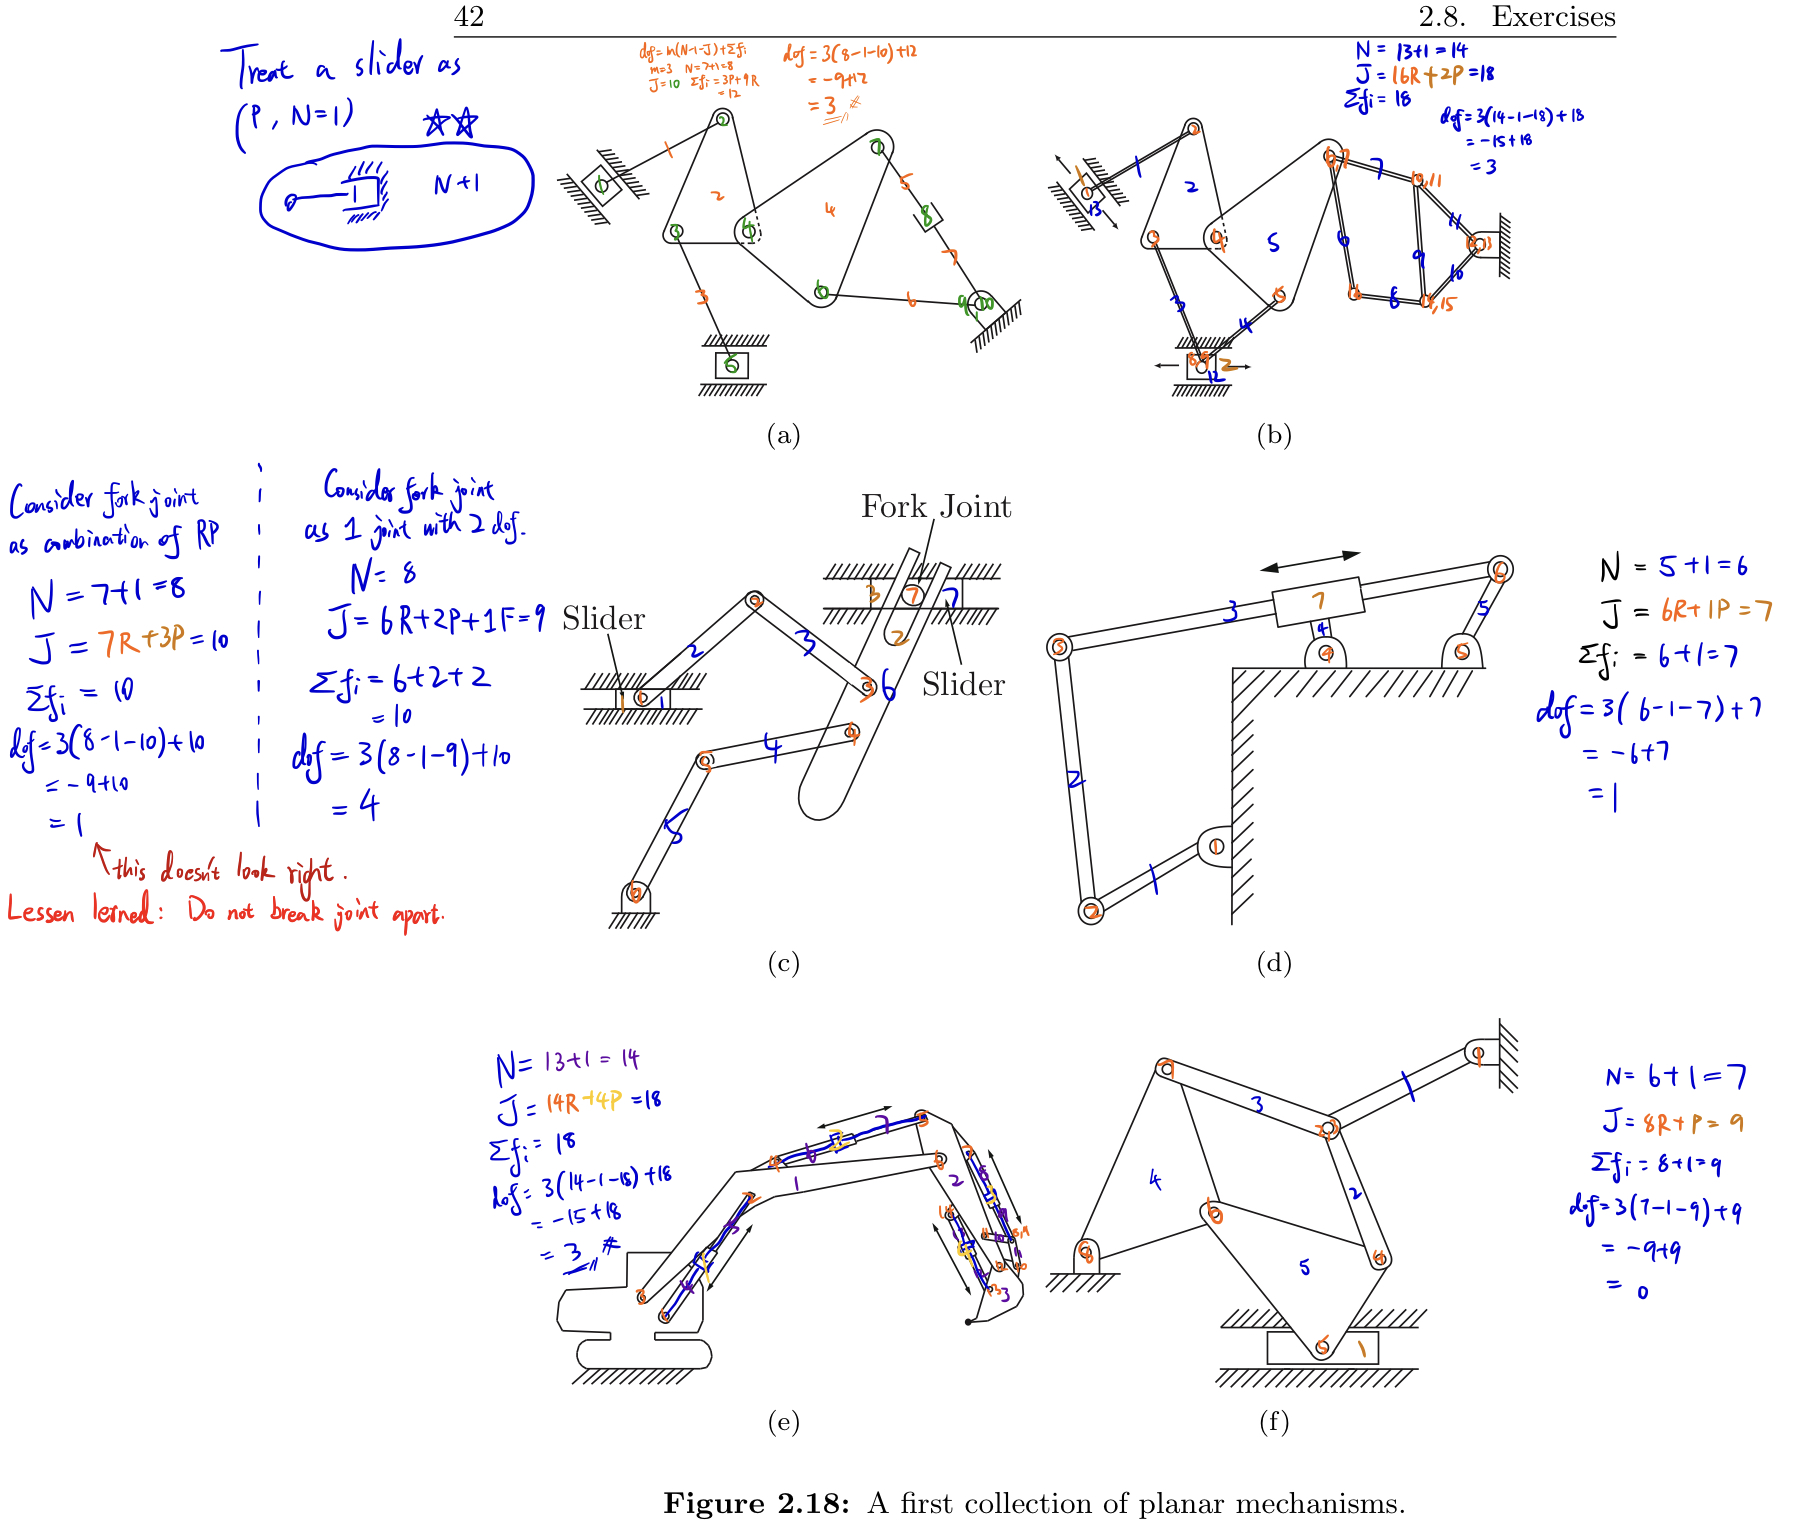 42
2.8. Exercises
Treat a slider as
(P, N=1)
N+1
dof = m(N-1-J)+Σfi
m=3 N=7+1=8
J=10 Σfi = 3P+9R
= 12
dof = 3(8-1-10)+12
= -9+12
= 3
N = 13+1 = 14
J = 16R+2P = 18
Σfi = 18
dof = 3(14-1-18)+18
= -15+18
= 3
(a)
(b)
Consider fork joint
as combination of RP
N = 7+1 = 8
J = 7R+3P = 10
Σfi = 10
dof = 3(8-1-10)+10
= -9+10
= 1
this doesn't look right.
Lessen lerned: Do not break joint apart.
Consider fork joint
as 1 joint with 2 dof.
N = 8
J = 6R+2P+1F = 9
Σfi = 6+2+2
= 10
dof = 3(8-1-9)+10
= 4
Fork Joint
Slider
Slider
N = 5+1 = 6
J = 6R+1P = 7
Σfi = 6+1 = 7
dof = 3(6-1-7)+7
= -6+7
= 1
(c)
(d)
N = 13+1 = 14
J = 14R+4P = 18
Σfi = 18
dof = 3(14-1-18)+18
= -15+18
= 3
N = 6+1 = 7
J = 8R+P = 9
Σfi = 8+1 = 9
dof = 3(7-1-9)+9
= -9+9
= 0
(e)
(f)
Figure 2.18: A first collection of planar mechanisms.